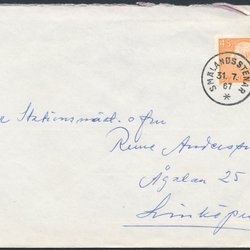 SMÅLANDSSTENAR
31. 7.
67
Stationsmäst. o fru
Rune Anderss
Ågatan 25
Linköpin